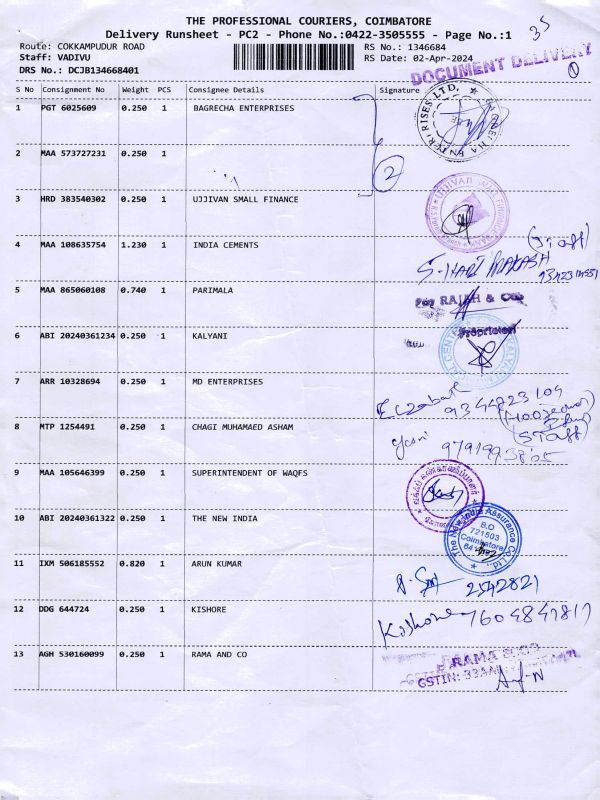 THE PROFESSIONAL COURIERS, COIMBATORE
Delivery Runsheet - PC2 - Phone No.:0422-3505555 - Page No.:1
35
Route: COKKAMPUDUR ROAD RS No.: 1346684
Staff: VADIVU RS Date: 02-Apr-2024
DRS No.: DCJB134668401
DOCUMENT DELIVERY
S No Consignment No Weight PCS Consignee Details Signature
1 PGT 6025609 0.250 1 BAGRECHA ENTERPRISES
2 MAA 573727231 0.250 1
2
3 HRD 383540302 0.250 1 UJJIVAN SMALL FINANCE
4 MAA 108635754 1.230 1 INDIA CEMENTS
(Staff)
S. HARI PRAKASH
5 MAA 865060108 0.740 1 PARIMALA
For RAJAH & Co
Proprietor
6 ABI 20240361234 0.250 1 KALYANI
7 ARR 10328694 0.250 1 MD ENTERPRISES
8 MTP 1254491 0.250 1 CHAGI MUHAMAED ASHAM
(Staff)
9 MAA 105646399 0.250 1 SUPERINTENDENT OF WAQFS
10 ABI 20240361322 0.250 1 THE NEW INDIA
The New India Assurance Co. Ltd.,
B.O
721503
Coimbatore
11 IXM 506185552 0.820 1 ARUN KUMAR
2542821
12 DDG 644724 0.250 1 KISHORE
Kishore 7604847817
13 AGH 530160099 0.250 1 RAMA AND CO
GSTIN: 33AA